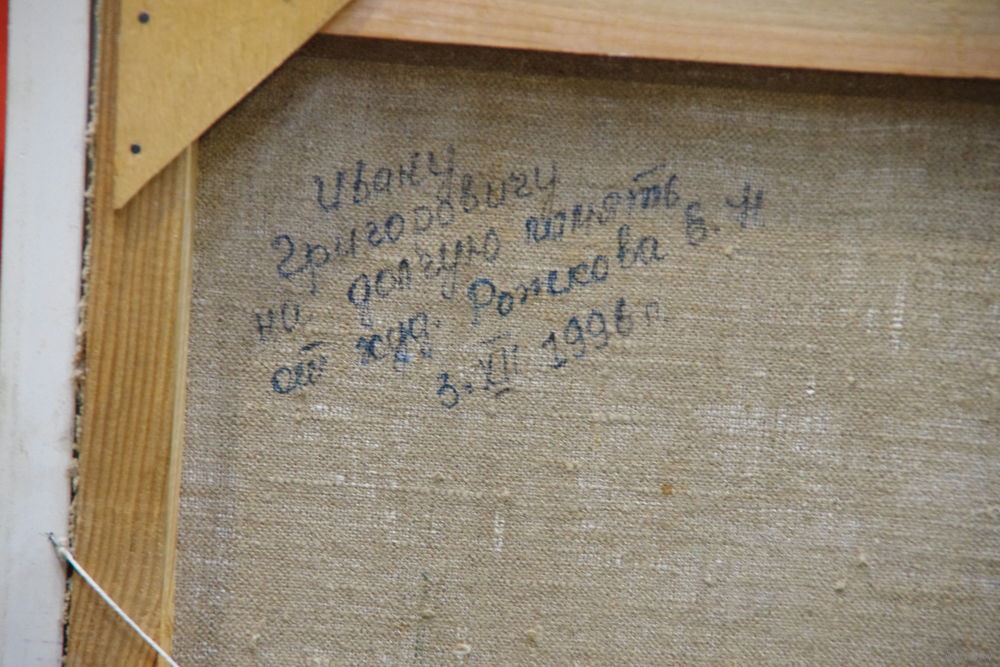 Ивану
Григоровичу
на долгую память
от худ. Рожкова Б. Н
3. VII 1996 г.